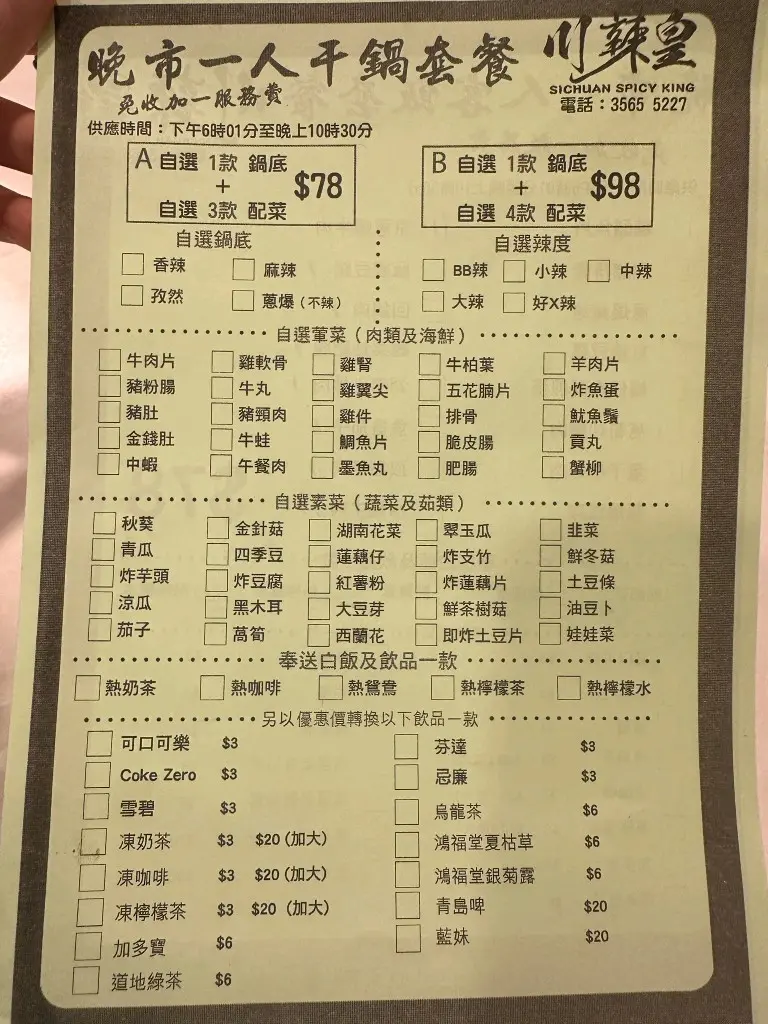 晚市一人干鍋套餐
川辣皇
免收加一服務費
SICHUAN SPICY KING
電話：3565 5227
供應時間：下午6時01分至晚上10時30分
A 自選 1款 鍋底 + 自選 3款 配菜 $78
B 自選 1款 鍋底 + 自選 4款 配菜 $98
自選鍋底
香辣 麻辣
孜然 蔥爆（不辣）
自選辣度
BB辣 小辣 中辣
大辣 好X辣
自選葷菜（肉類及海鮮）
牛肉片 雞軟骨 雞腎 牛柏葉 羊肉片
豬粉腸 牛丸 雞翼尖 五花腩片 炸魚蛋
豬肚 豬頸肉 雞件 排骨 魷魚鬚
金錢肚 牛蛙 鯛魚片 脆皮腸 貢丸
中蝦 午餐肉 墨魚丸 肥腸 蟹柳
自選素菜（蔬菜及茹類）
秋葵 金針菇 湖南花菜 翠玉瓜 韭菜
青瓜 四季豆 蓮藕仔 炸支竹 鮮冬菇
炸芋頭 炸豆腐 紅薯粉 炸蓮藕片 土豆條
涼瓜 黑木耳 大豆芽 鮮茶樹菇 油豆卜
茄子 萵筍 西蘭花 即炸土豆片 娃娃菜
奉送白飯及飲品一款
熱奶茶 熱咖啡 熱鴛鴦 熱檸檬茶 熱檸檬水
另以優惠價轉換以下飲品一款
可口可樂 $3 芬達 $3
Coke Zero $3 忌廉 $3
雪碧 $3 烏龍茶 $6
凍奶茶 $3 $20（加大） 鴻福堂夏枯草 $6
凍咖啡 $3 $20（加大） 鴻福堂銀菊露 $6
凍檸檬茶 $3 $20（加大） 青島啤 $20
加多寶 $6 藍妹 $20
道地綠茶 $6